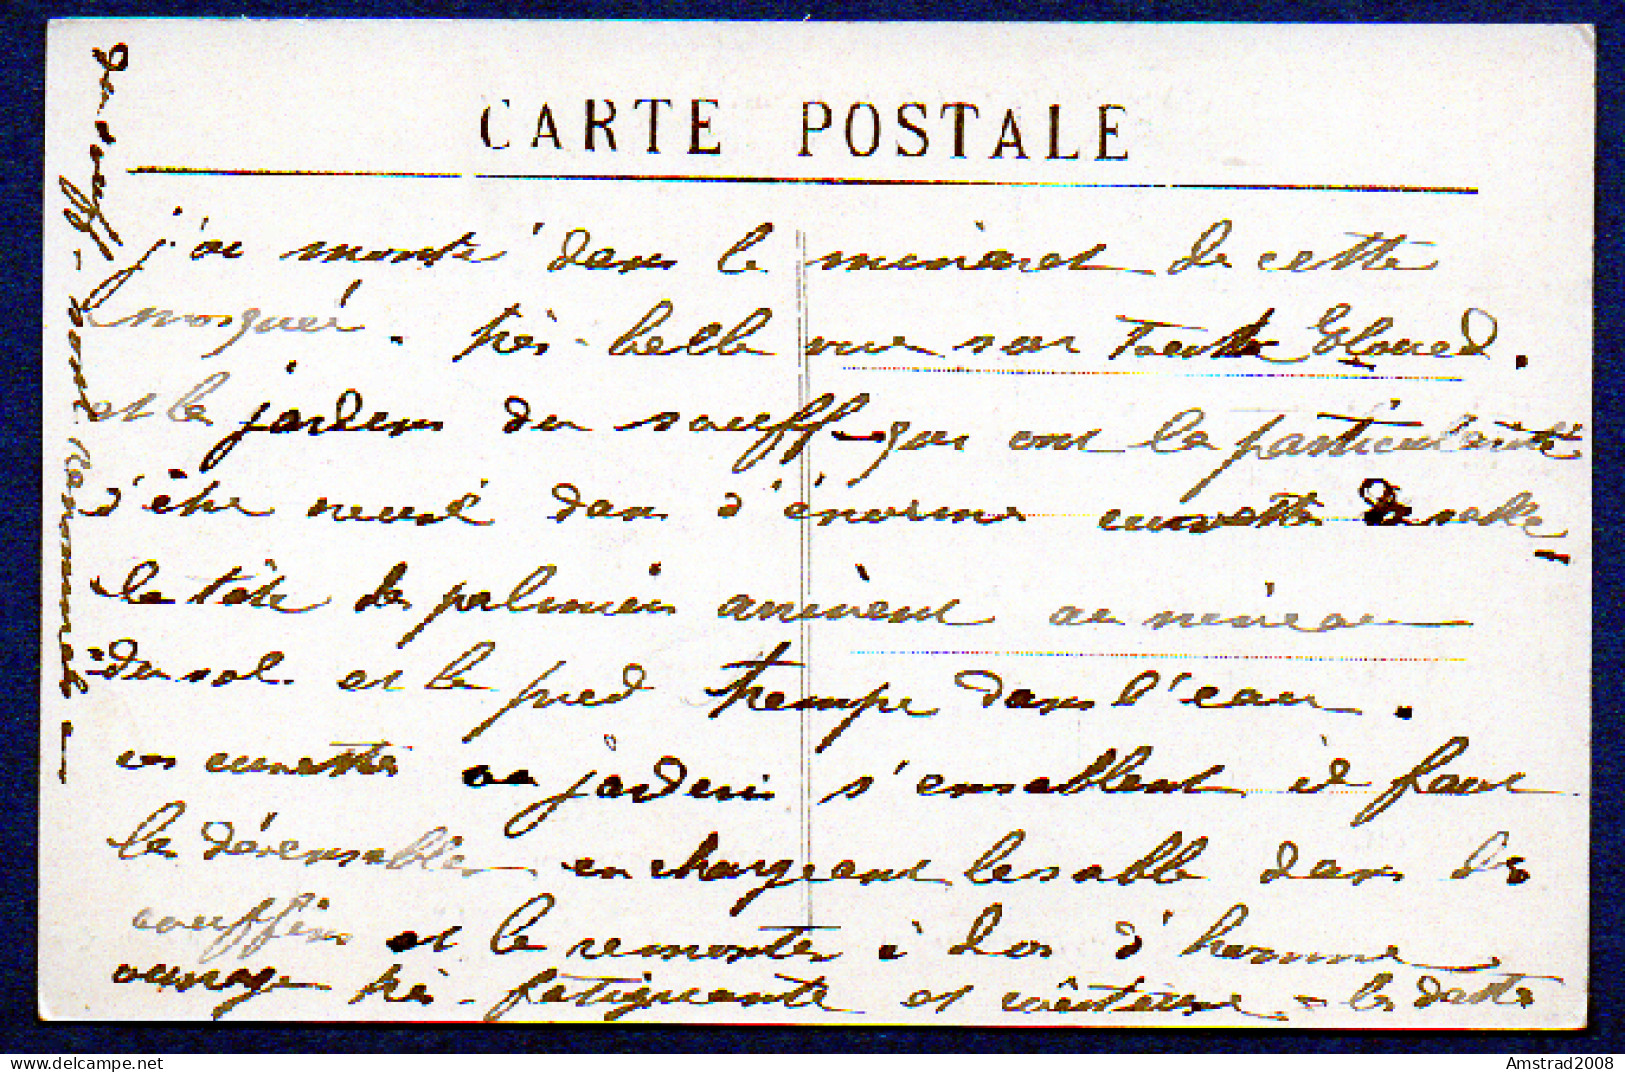 CARTE POSTALE
j'ai monté dans le minaret de cette
mosquée. très belle vue sur toute El oued.
et les jardins du souff - qui ont la particularité
d'être creusé dans d'énorme cuvette de sable!
la tête des palmiers arrivent au niveau
du sol et le pied trempe dans l'eau.
ces cuvettes ou jardins s'ensablent il faut
les désensabler en chargeant le sable dans des
couffins et le remonter à dos d'homme
ouvrage très fatiguante et - les dattes
du souff - sont renommées -
Amstrad2008